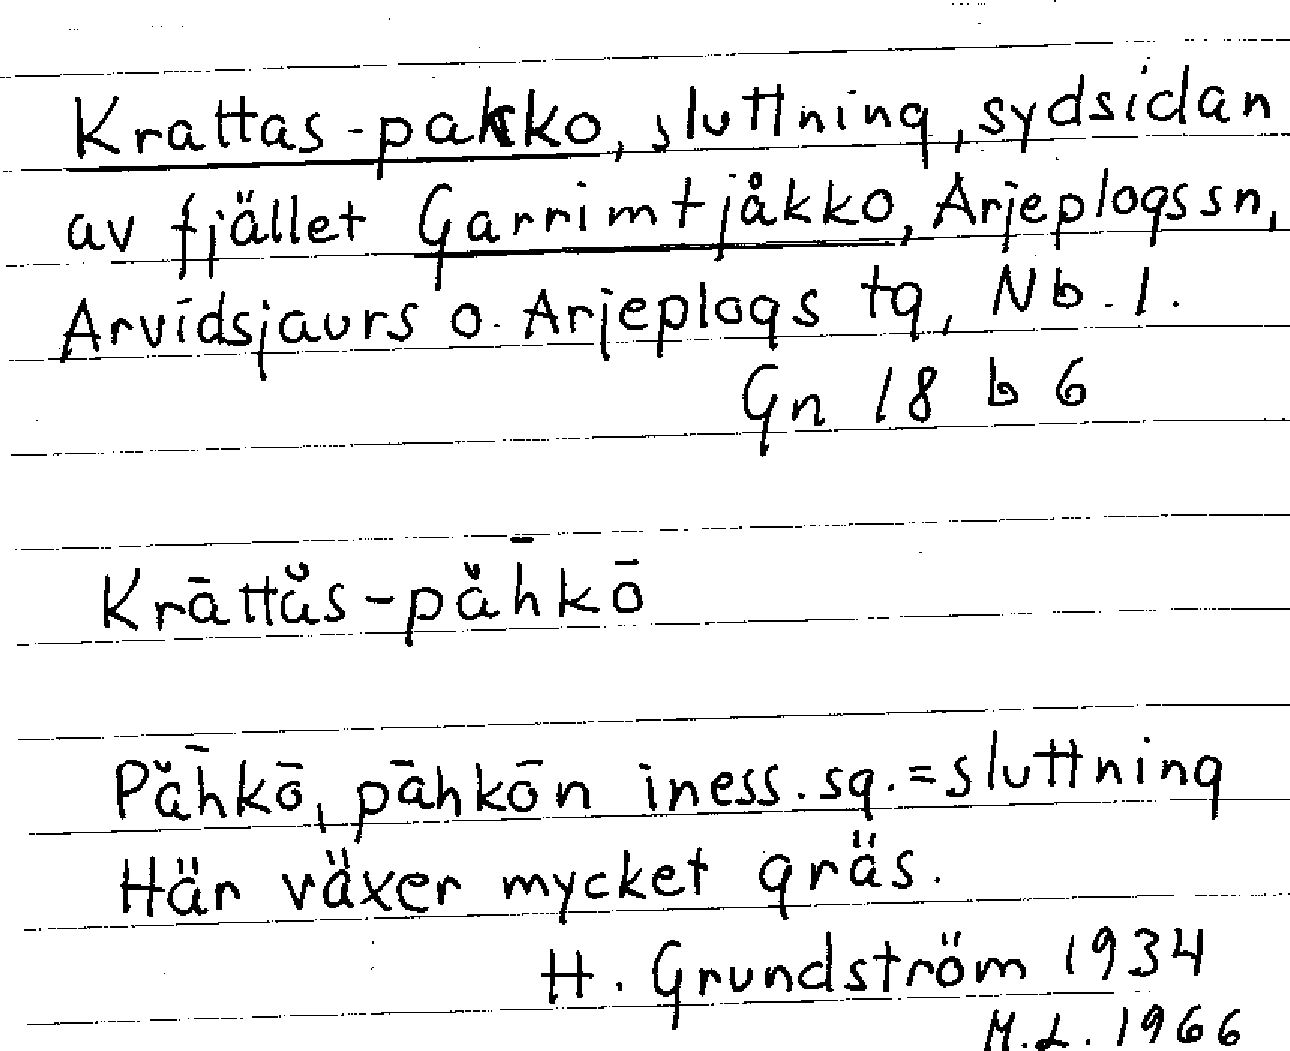 Krattas-pakko, sluttning, sydsidan
av fjället Garrimtjåkko, Arjeplogs sn,
Arvidsjaurs o. Arjeplogs tg, Nb. l.
Gn 18 b 6
Krāttǎs-pǎh̄kō
Pǎh̄kō, pāhkōn iness. sg. = sluttning
Här växer mycket gräs.
H. Grundström 1934
M.L. 1966